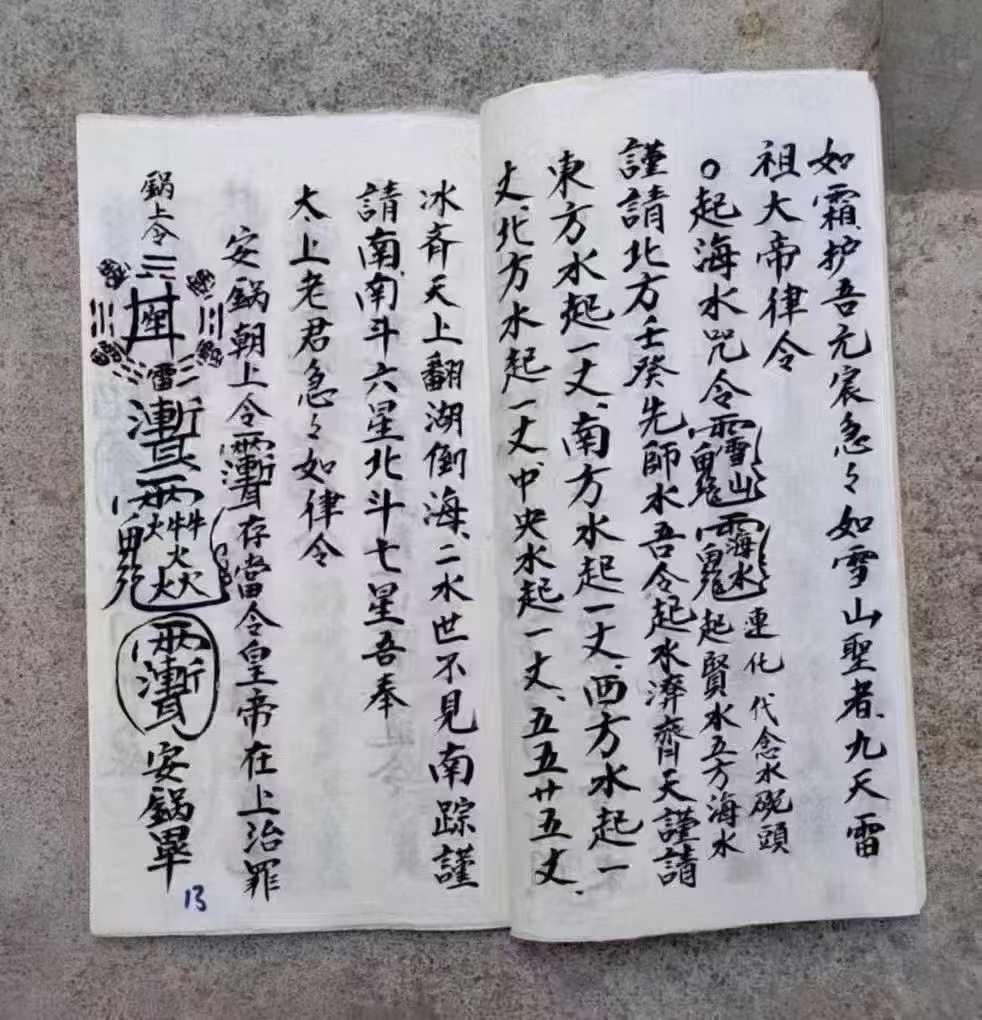 如霜、护吾元宸急々如雪山聖者、九天雷
祖大帝律令
○起海水咒令 連化 代念水碗頭
起賢水五方海水
謹請北方壬癸先師水吾令起水濟齊天謹請
東方水起一丈、南方水起一丈、西方水起一
丈、北方水起一丈、中央水起一丈、五五廿五丈、
冰齐天上翻湖倒海、二水世不見南踪謹
請南南斗六星北斗七星吾奉
太上老君急々如律令
安鍋朝上令 存當令皇帝在上治罪
鍋上令 安鍋畢
13